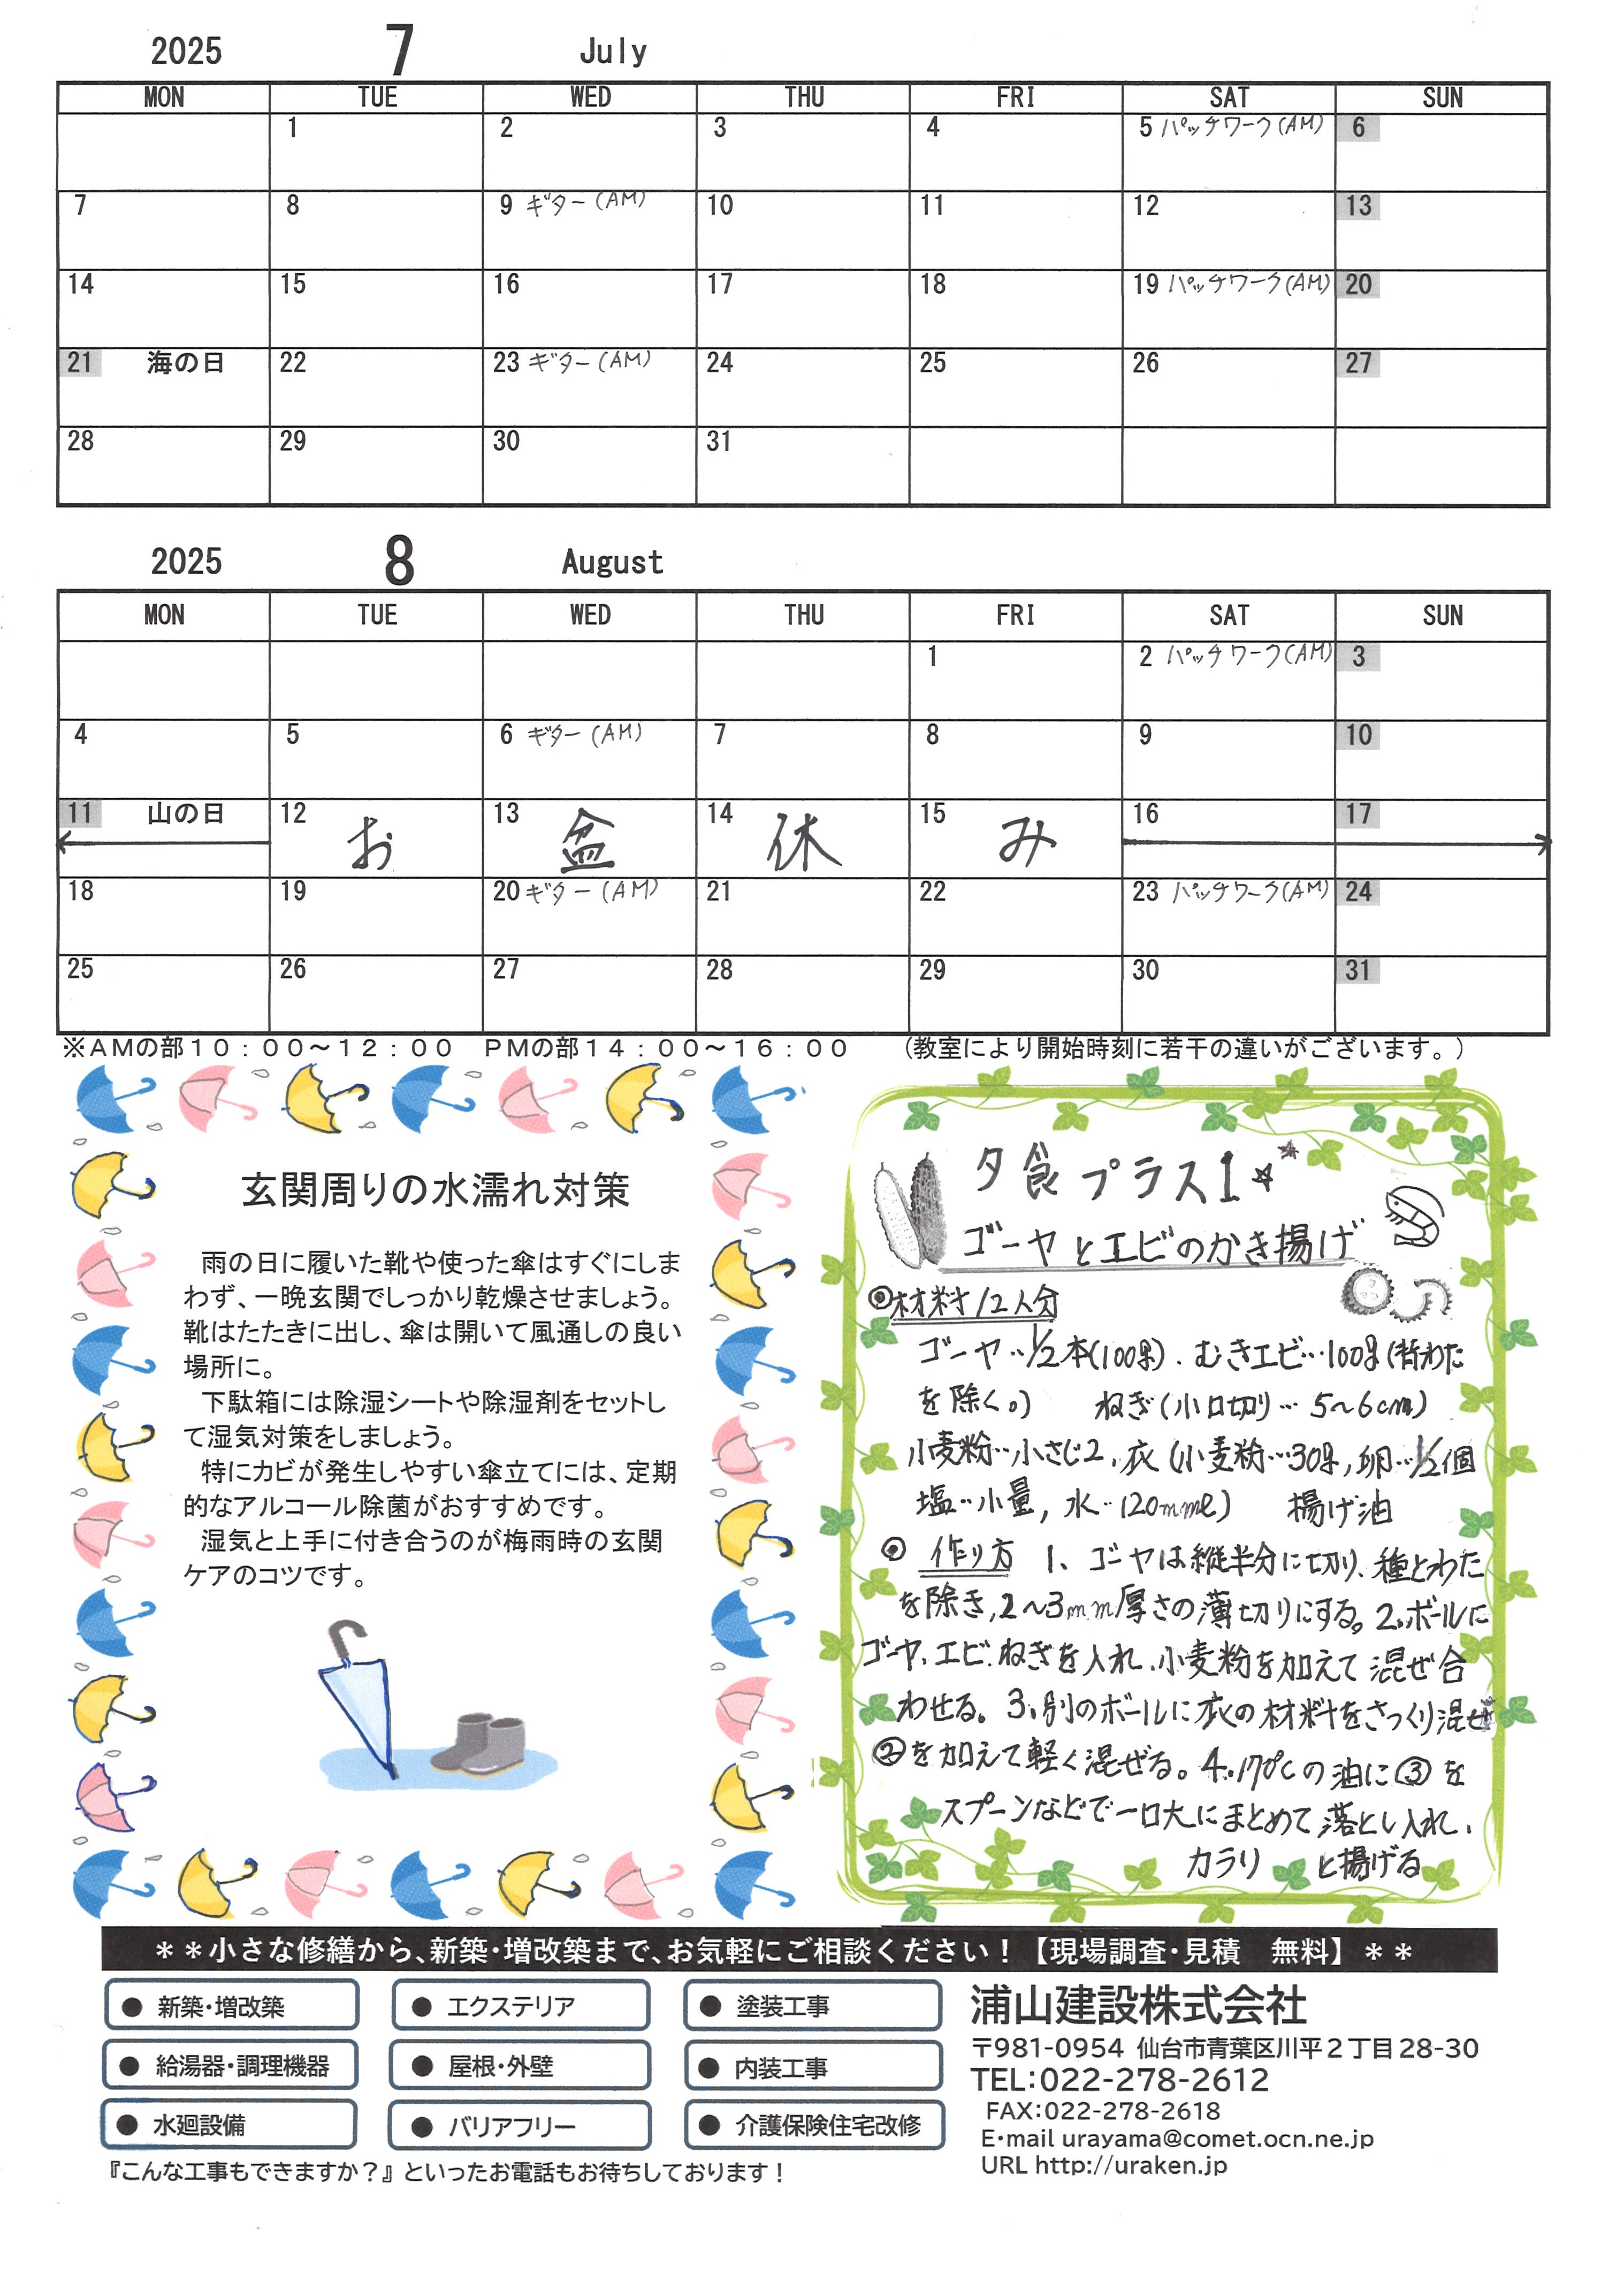 2025 7 July
MON TUE WED THU FRI SAT SUN
1 2 3 4 5 パッチワーク(AM) 6
7 8 9 ギター(AM) 10 11 12 13
14 15 16 17 18 19 パッチワーク(AM) 20
21 海の日 22 23 ギター(AM) 24 25 26 27
28 29 30 31
2025 8 August
MON TUE WED THU FRI SAT SUN
1 2 パッチワーク(AM) 3
4 5 6 ギター(AM) 7 8 9 10
11 山の日 12 13 14 15 16 17
お 盆 休 み
18 19 20 ギター(AM) 21 22 23 パッチワーク(AM) 24
25 26 27 28 29 30 31
※AMの部10：00～12：00 PMの部14：00～16：00 （教室により開始時刻に若干の違いがございます。）
玄関周りの水濡れ対策
雨の日に履いた靴や使った傘はすぐにしま
わず、一晩玄関でしっかり乾燥させましょう。
靴はたたきに出し、傘は開いて風通しの良い
場所に。
下駄箱には除湿シートや除湿剤をセットし
て湿気対策をしましょう。
特にカビが発生しやすい傘立てには、定期
的なアルコール除菌がおすすめです。
湿気と上手に付き合うのが梅雨時の玄関
ケアのコツです。
夕食プラス1☆★
ゴーヤとエビのかき揚げ
◎材料/2人分
ゴーヤ…1/2本(100g)．むきエビ…100g(背わた
を除く。) ねぎ(小口切り…5～6cm)
小麦粉…小さじ2、衣(小麦粉…30g,卵…1/2個
塩…小量,水…120mml) 揚げ油
◎作り方 1、ゴーヤは縦半分に切り、種とわた
を除き,2～3mm厚さの薄切りにする。2.ボールに
ゴーヤ、エビ、ねぎを入れ、小麦粉を加えて混ぜ合
わせる。3、別のボールに衣の材料をさっくり混ぜ
②を加えて軽く混ぜる。4.170℃の油に③を
スプーンなどで一口大にまとめて落とし入れ、
カラリ と揚げる
＊＊小さな修繕から、新築・増改築まで、お気軽にご相談ください！【現場調査・見積 無料】＊＊
● 新築・増改築 ● エクステリア ● 塗装工事
● 給湯器・調理機器 ● 屋根・外壁 ● 内装工事
● 水廻設備 ● バリアフリー ● 介護保険住宅改修
『こんな工事もできますか？』といったお電話もお待ちしております！
浦山建設株式会社
〒981-0954 仙台市青葉区川平２丁目28-30
TEL：022-278-2612
FAX：022-278-2618
E・mail urayama@comet.ocn.ne.jp
URL http://uraken.jp